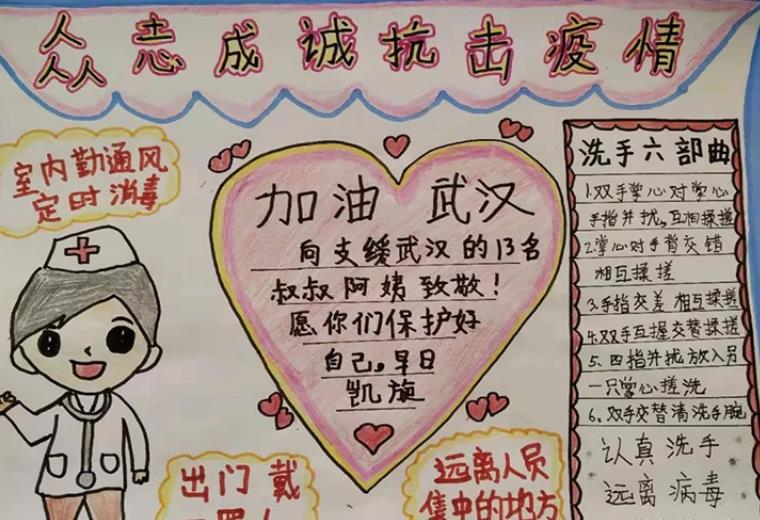 众志成诚抗击疫情
室内勤通风
定时消毒
加油 武汉
向支缓武汉的13名
叔叔阿姨致敬!
愿你们保护好
自己。早日
凯旋
洗手六部曲
1.双手掌心对掌心
手指并扰,互相揉搓
2.掌心对手背交错
相互揉搓
3.手指交差 相互揉搓
4.双手互握交替揉搓
5、四指并扰放入员
一只掌心搓洗
6、双手交替清洗手腕
认真洗手
远离病毒
出门戴
远离人员
集中的地方